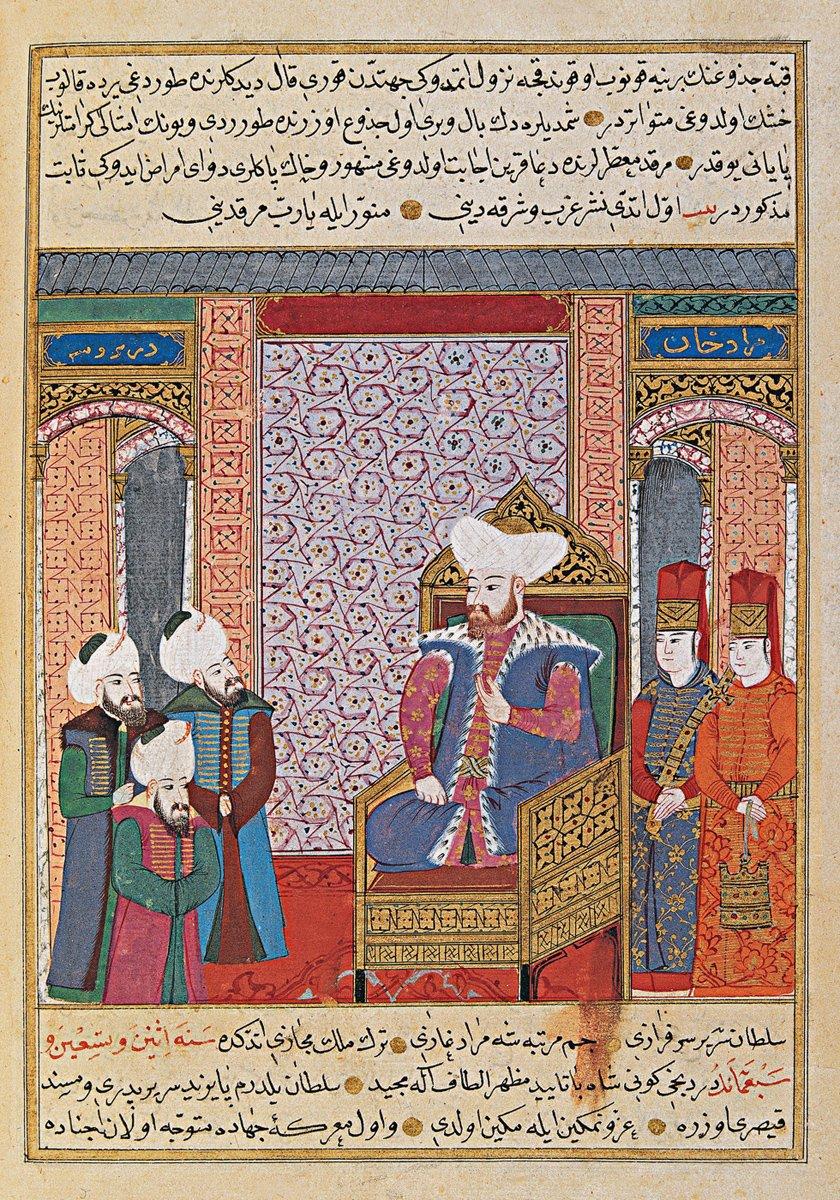 قبه جذوعنك برينه قونوب اوقوندقجه نزول اتمدوكى جهتدن قورى قال ديدكلرنده طوردغى يرده قالوب
خشك اولدوغى متواتردر شمديلره دك بال وبرى اول جذوع اوزرنده طورردى وبونك امثالى كراماتلرينك
پايانى يوقدر مرقد معطرلرنده دعا قرين اجابت اولدوغى مشهور وخاك پاكلرى دواى امراض ايدوكى ثابت
مذكوردر بيت اول اتدى نشر غرب وشرقه دينى منور ايله يا رب مرقدينى
در بروسه
مراد خان
سلطان سرير سرفرازى جم مرتبه شه مراد غازى ترك ملك مجازى اتدكده سنه اثنين وتسعين و
سبعمائه در ديجى كونى شاه با تاييد مظهر الطاف اله مجيد سلطان يلدرم بايزيد سرير پدرى ومسند
قيصرى اوزره عز وتمكين ايله مكين اولدى واول معركۀ جهاده متوجه اولان اجناده